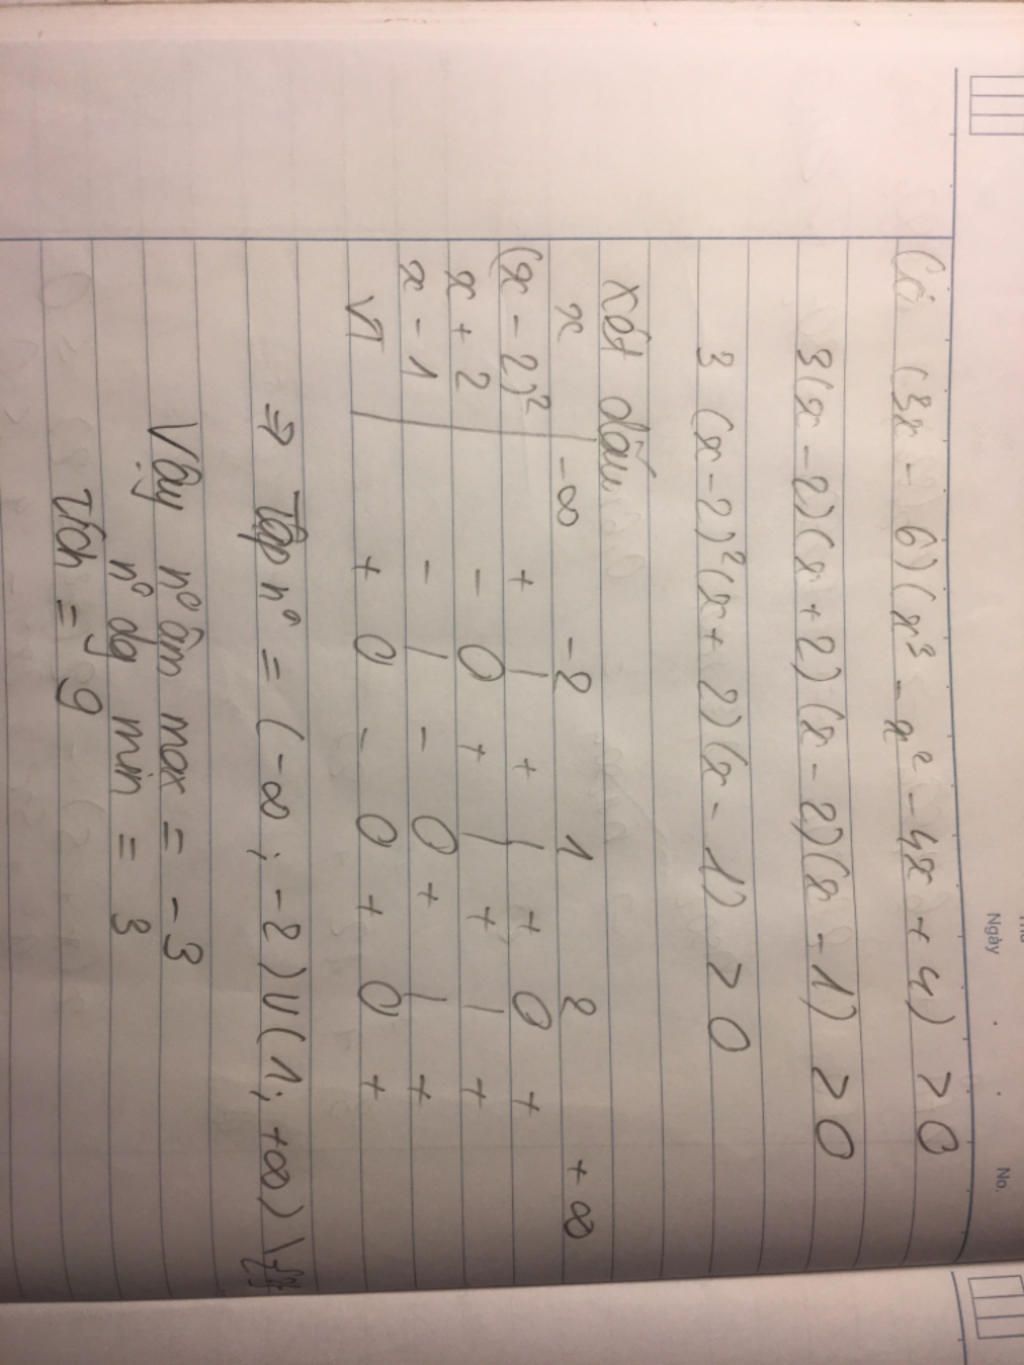 Thứ
Ngày . . No.
Có (3x - 6)(x³ - x² - 4x + 4) > 0
3(x - 2)(x + 2)(x - 2)(x - 1) > 0
3 (x - 2)²(x + 2)(x - 1) > 0
Xét dấu
x -∞ -2 1 2 +∞
(x - 2)² + | + | + 0 +
x + 2 - 0 + | + | +
x - 1 - | - 0 + | +
VT + 0 - 0 + 0 +
⇒ Tập n⁰ = (-∞ ; -2) ∪ (1 ; +∞) \
Vậy n⁰ âm max = -3
n⁰ dg min = 3
Tích = -9